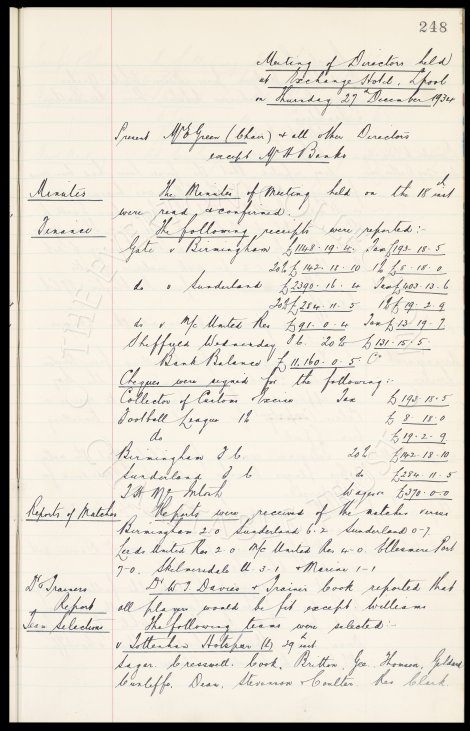 248
Meeting of Directors held
at Exchange Hotel, L'pool
on Thursday 27th December 1934
Present Mr E Green (Chair) & all other Directors
except Mr H Banks
Minutes
The Minutes of Meeting held on the 18th inst
were read & confirmed.
Finance
The following receipts were reported:-
Gate v Birmingham £1148.19.4. Tax £193.18.5
20% £142.18.10 1% £8.18.0
do v Sunderland £2390.16.4 Tax £403.13.6
20% £284.11.5 1% £19.2.9
do v M/c United Res £91.0.4 Tax £13.19.7
Sheffield Wednesday F.C. 20% £131.15.5
Bank Balance £11,160.0.5 Cr
Cheques were signed for the following:-
Collector of Customs Excise Tax £193.18.5
Football League 1% £8.18.0
do £19.2.9
Birmingham F.C. 20% £142.18.10
Sunderland F C do £284.11.5
T H McIntosh Wages £370.0.0
Reports of Matches
Reports were received of the matches versus
Birmingham 2.0 Sunderland 6.2 Sunderland 0-7
Leeds United Res 2.0 M/c United Res 4-0. Ellesmere Port
7-0. Skelmersdale U. 3-1 & Marine 1-1
Dr & Trainers
Report
Dr W J Davies & Trainer Cook reported that
all players would be fit except Williams
Team Selections
The following teams were selected:-
v Tottenham Hotspur (h) 29th inst
Sagar. Cresswell. Cook. Britton. Gee. Thomson. Geldard
Cunliffe. Dean. Stevenson & Coulter. Res Clark.